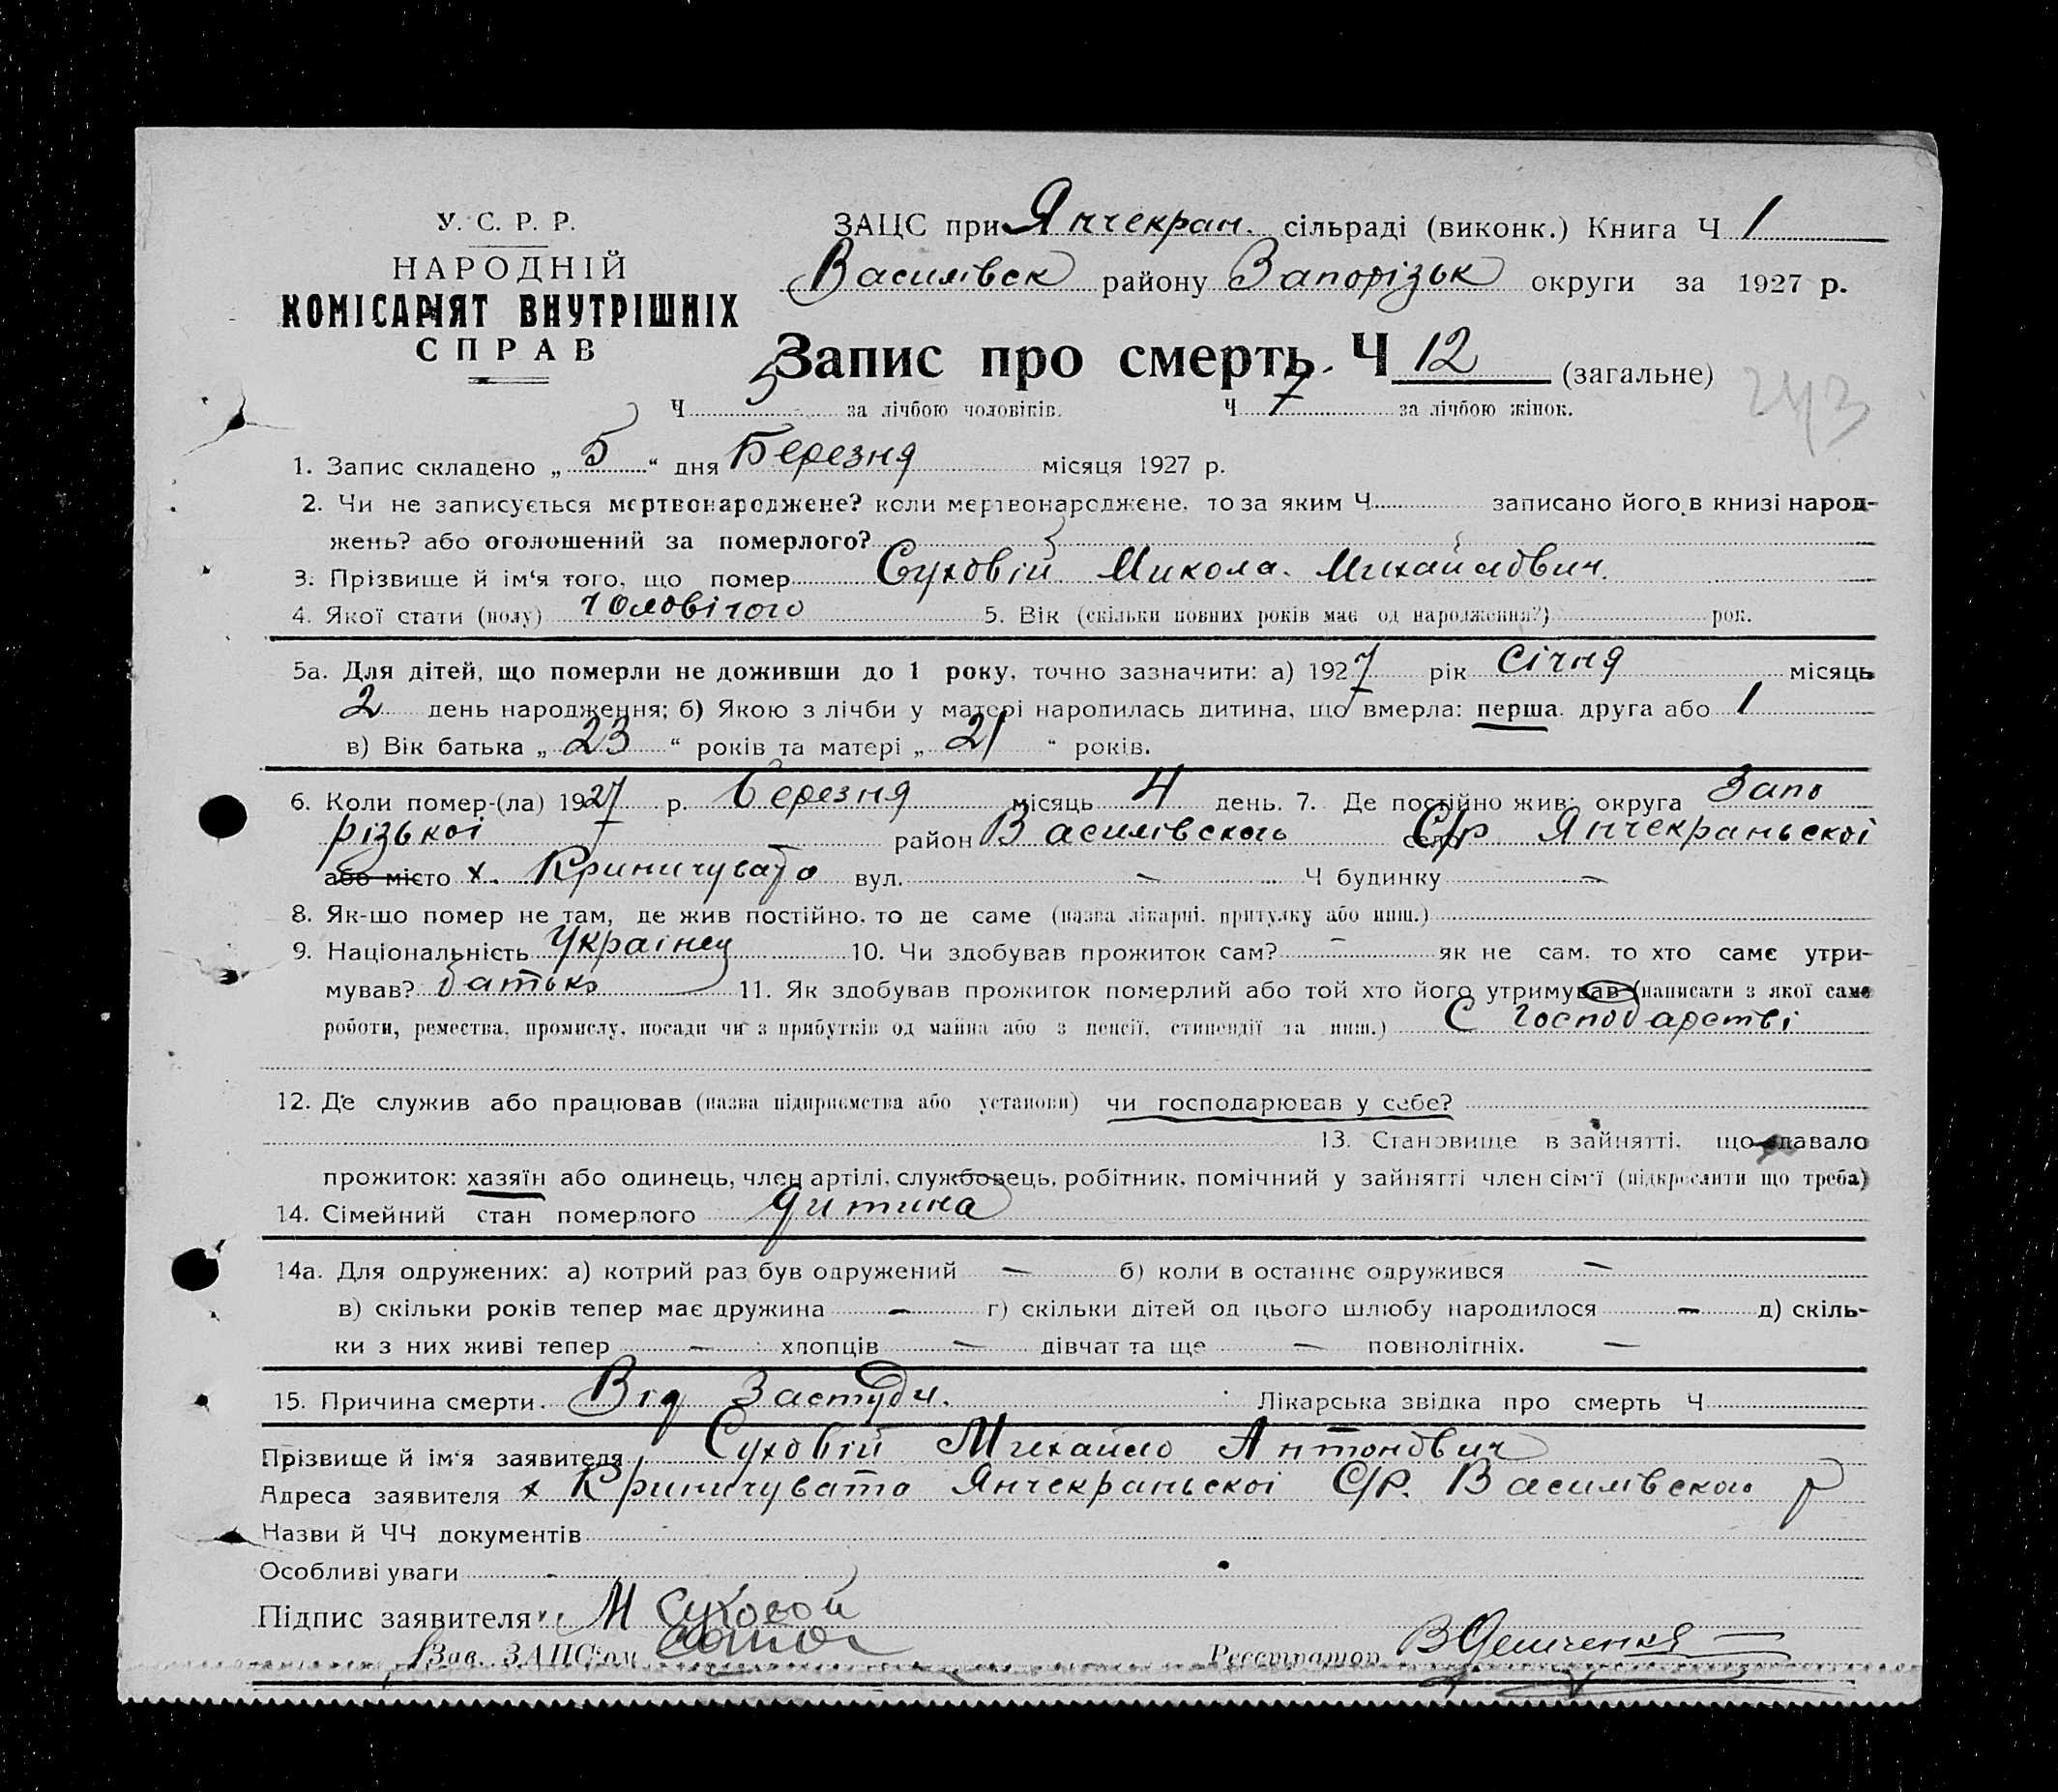 У. С. Р. Р.
НАРОДНІЙ
КОМІСАРІЯТ ВНУТРІШНІХ
СПРАВ
ЗАЦС при Янчекран. сільраді (виконк.) Книга Ч 1
Василівск району Запорізьк округи за 1927 р.
Запис про смерть Ч 12 (загальне)
243
Ч 5 за лічбою чоловіків. Ч 7 за лічбою жінок.
1. Запис складено „ 5 “ дня Березня місяця 1927 р.
2. Чи не записується мертвонароджене? коли мертвонароджене, то за яким Ч записано його в книзі народ-
жень? або оголошений за померлого?
3. Прізвище й ім‘я того, що помер Суховій Микола Михайлович.
4. Якої стати (полу) чоловічого 5. Вік (скільки повних років має од народження?) рок.
5а. Для дітей, що померли не доживши до 1 року, точно зазначити: а) 1927 рік Січня місяць
2 день народження; б) Якою з лічби у матері народилась дитина, що вмерла: перша. друга або 1
в) Вік батька „ 23 “ років та матері „ 21 “ років.
6. Коли помер-(ла) 1927 р. березня місяць 4 день. 7. Де постійно жив: округа Запо
різькоі район Василівского село С/р Янчекраньскоі
або місто х. Криничувато вул. — Ч будинку —
8. Як-що помер не там, де жив постійно, то де саме (назва лікарні, притулку або инш.)
9. Національність Украінец 10. Чи здобував прожиток сам? – як не сам, то хто саме утри-
мував? батько 11. Як здобував прожиток померлий або той хто його утримував (написати з якої саме
роботи, ремества, промислу, посади чи з прибутків од майна або з пенсії, стипендії та инш.) С господарстві
12. Де служив або працював (назва підприємства або установи) чи господарював у себе?
13. Становище в зайнятті, що давало
прожиток: хазяїн або одинець, член артілі, службовець, робітник, помічний у зайнятті член сім‘ї (підкреслити що треба)
14. Сімейний стан померлого дитина
14а. Для одружених: а) котрий раз був одружений — б) коли в останнє одружився —
в) скільки років тепер має дружина — г) скільки дітей од цього шлюбу народилося — д) скіль-
ки з них живі тепер — хлопців — дівчат та ще — повнолітніх. —
15. Причина смерти. Від Застуди. Лікарська звідка про смерть Ч
Прізвище й ім‘я заявителя Суховій Михайло Антонович
Адреса заявителя х Криничувато Янчекраньскоі С/р. Василівского р
Назви й ЧЧ документів
Особливі уваги
Підпис заявителя М Суховой
Зав. ЗАПС‘ом Реєстратор В Демченко